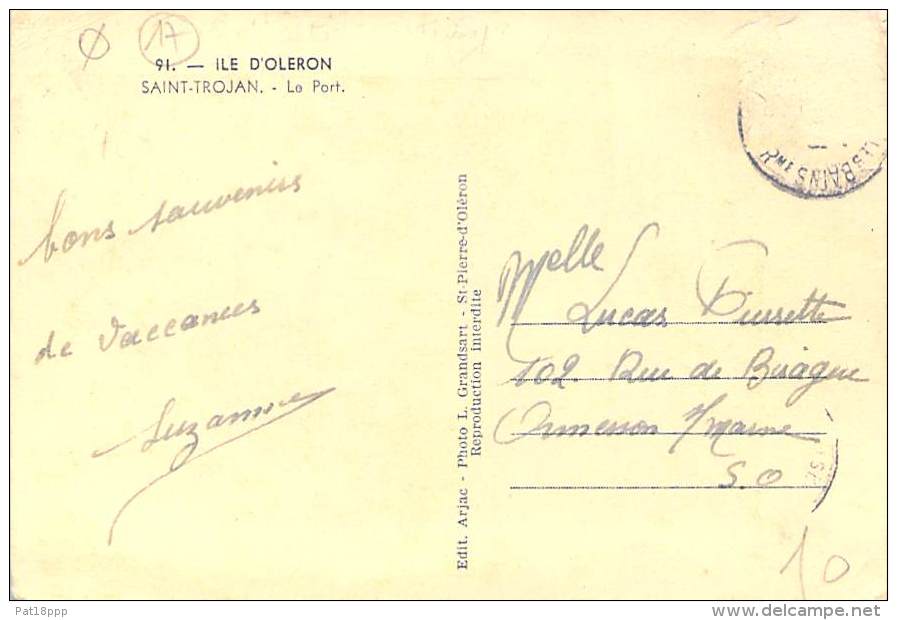 17
91. — ILE D'OLERON
SAINT-TROJAN. - Le Port.
bons souvenirs
de Vaccances
Suzanne
Edit. Arjac - Photo L. Grandsart - St-Pierre-d'Oléron
Reproduction interdite
LES BAINS
Melle
Lucas Pierrette
102 Rue de
Ormesson s/marne
S.O
10
Pat18ppp
www.delcampe.net